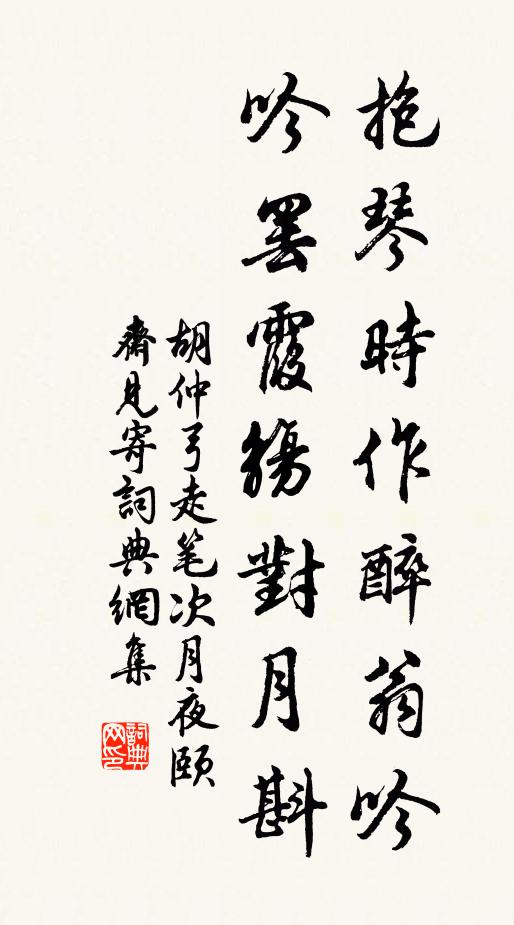 抱琴時作醉翁吟
吟罷霞觴對月斟
胡仲弓走笔次月夜颐
齋見寄詞典網集
詞典
网印